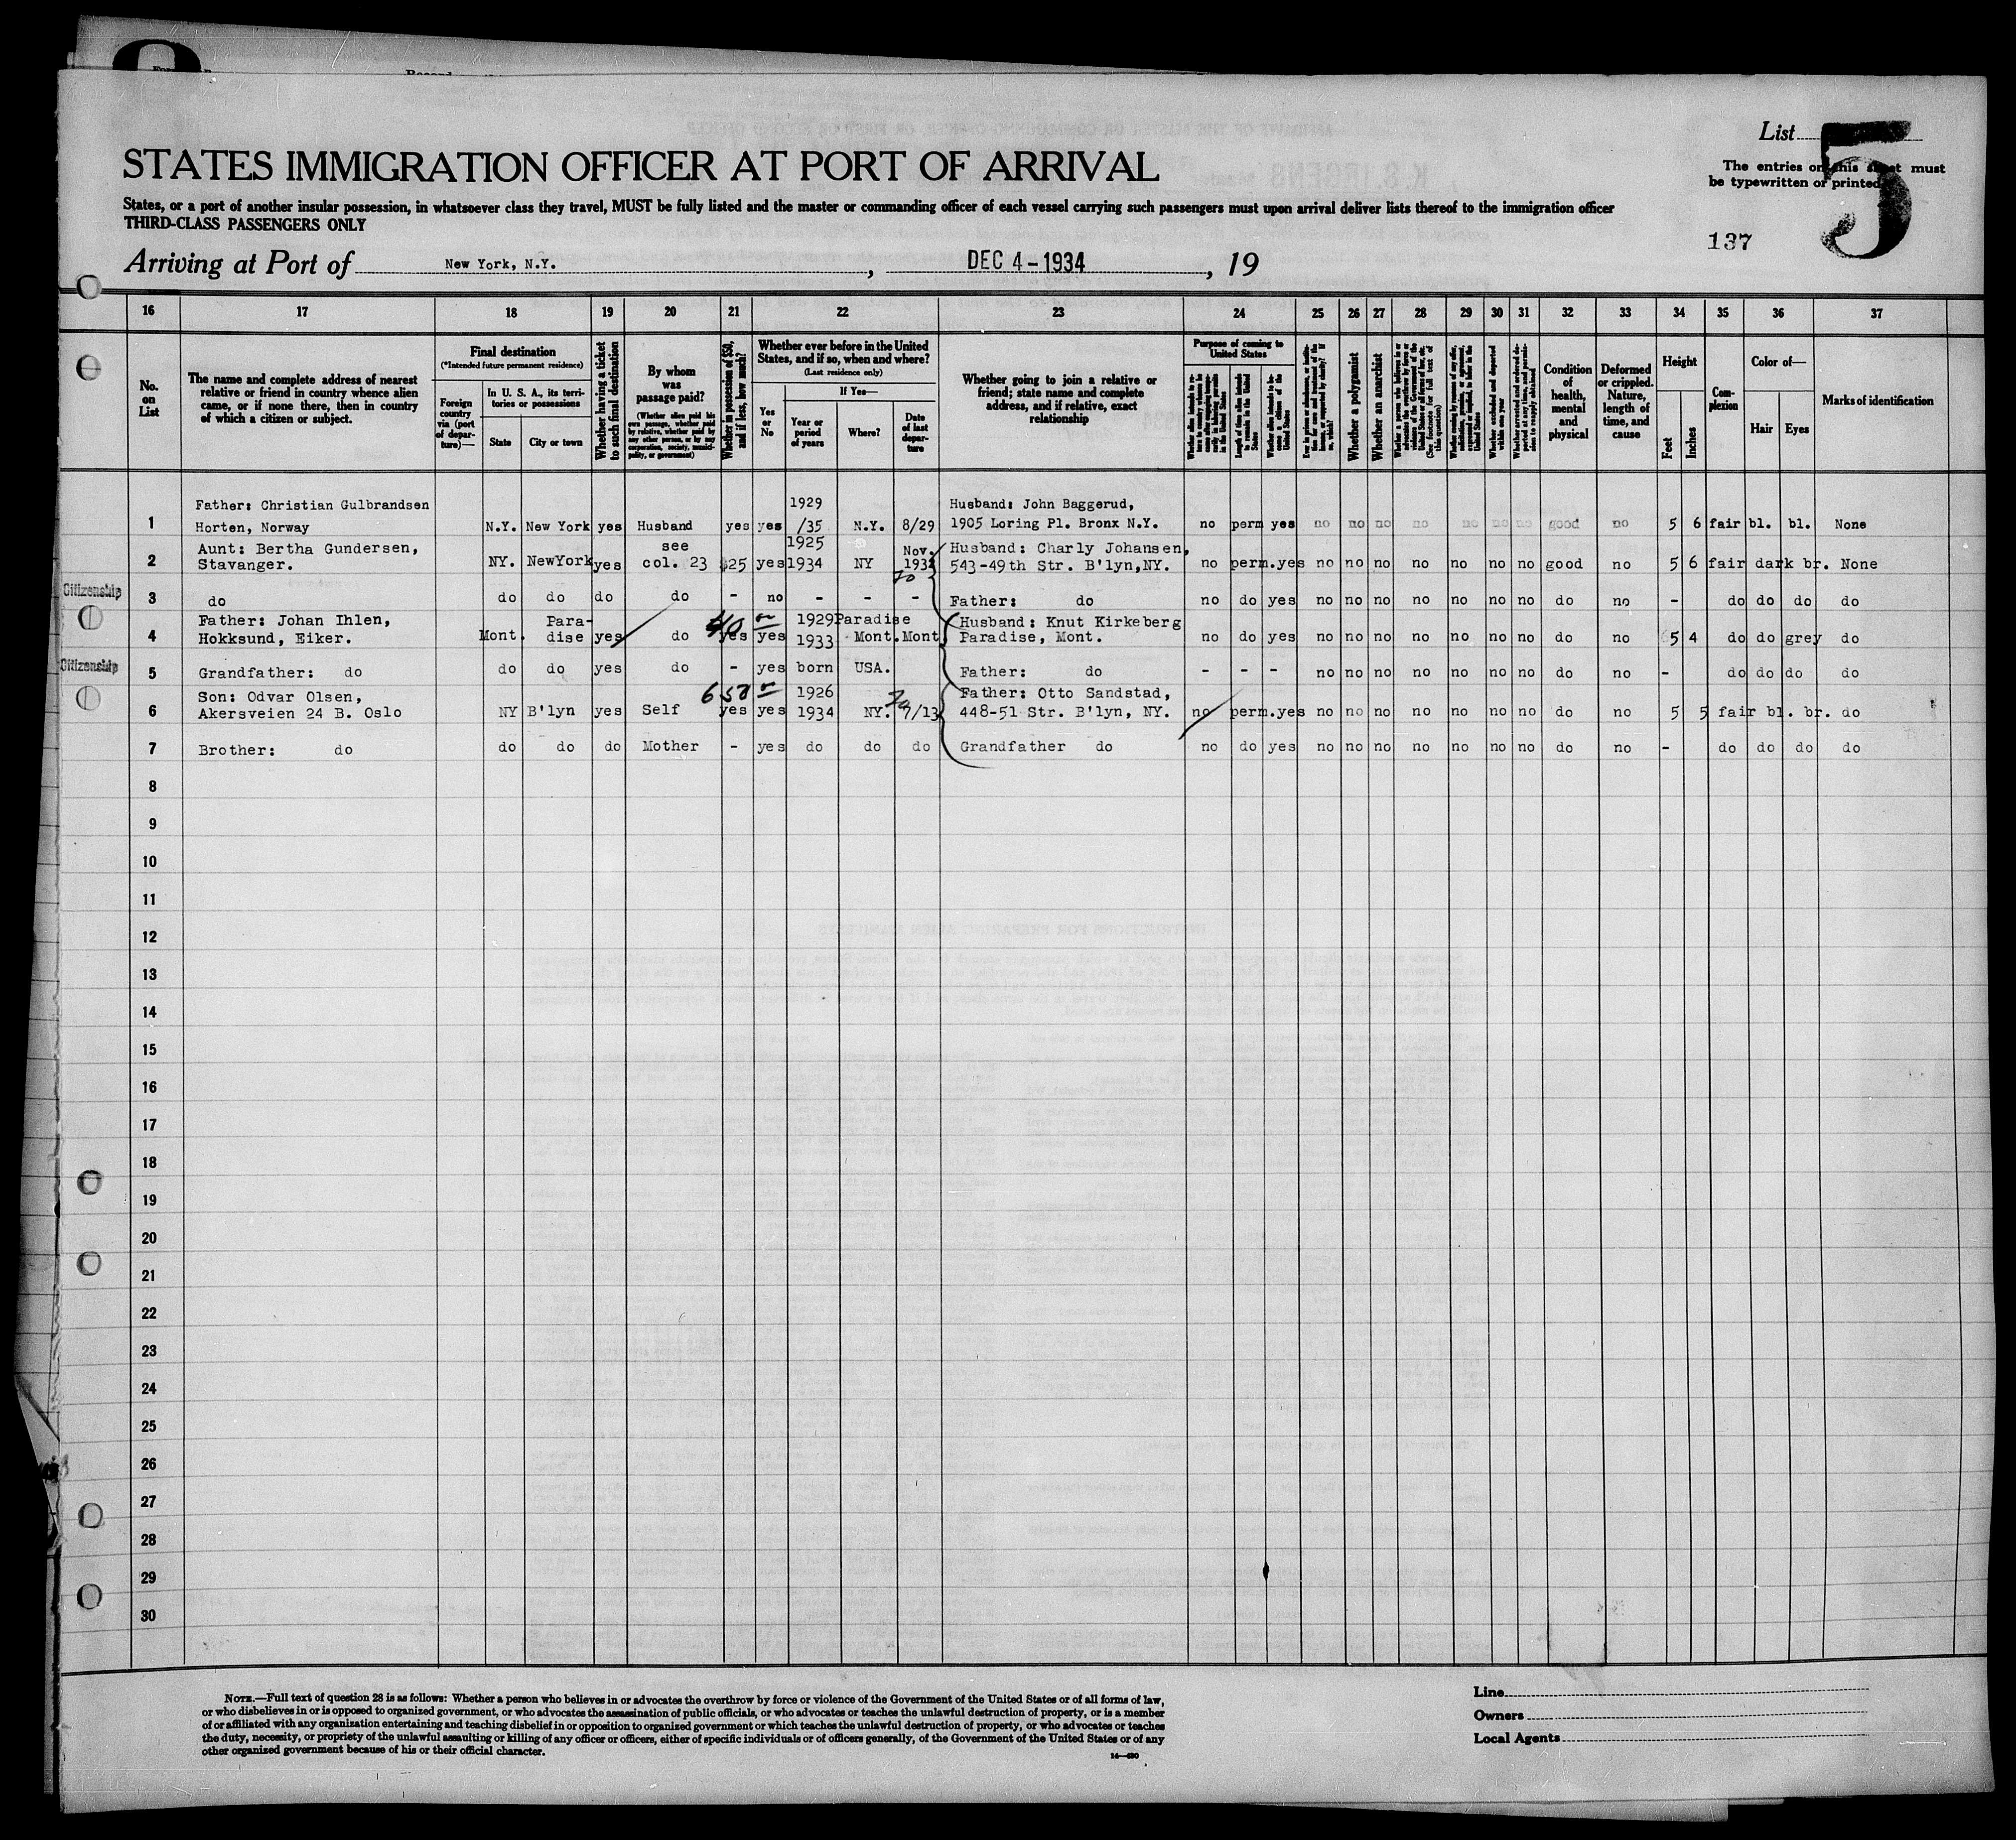 List 5
STATES IMMIGRATION OFFICER AT PORT OF ARRIVAL
The entries on this sheet must
be typewritten or printed
States, or a port of another insular possession, in whatsoever class they travel, MUST be fully listed and the master or commanding officer of each vessel carrying such passengers must upon arrival deliver lists thereof to the immigration officer
THIRD-CLASS PASSENGERS ONLY
137
Arriving at Port of New York, N.Y. , DEC 4-1934 , 19
16 17 18 19 20 21 22 23 24 25 26 27 28 29 30 31 32 33 34 35 36 37
No. on List
The name and complete address of nearest
relative or friend in country whence alien
came, or if none there, then in country
of which a citizen or subject.
Final destination
(*Intended future permanent residence)
Foreign country via (port of departure)—
In U. S. A., its territories or possessions
State
City or town
Whether having a ticket to such final destination
By whom was passage paid?
(Whether alien paid his own passage, whether paid by relative, whether paid by any other person, or by any corporation, society, municipality, or government)
Whether in possession of $50, and if less, how much?
Whether ever before in the United
States, and if so, when and where?
(Last residence only)
Yes or No
If Yes—
Year or period of years
Where?
Date of last departure
Whether going to join a relative or
friend; state name and complete
address, and if relative, exact
relationship
Purpose of coming to United States
Length of time alien intends to remain in the United States
Whether alien intends to become a citizen of the United States
Whether a polygamist
Whether an anarchist
Condition of health, mental and physical
Deformed or crippled. Nature, length of time, and cause
Height
Feet
Inches
Complexion
Color of—
Hair
Eyes
Marks of identification
Father: Christian Gulbrandsen 1929 Husband: John Baggerud,
1 Horten, Norway N.Y. New York yes Husband yes yes /35 N.Y. 8/29 1905 Loring Pl. Bronx N.Y. no perm yes no no no no no no no good no 5 6 fair bl. bl. None
Aunt: Bertha Gundersen, see 1925 Nov. Husband: Charly Johansen,
2 Stavanger. NY. NewYork yes col. 23 $25 yes 1934 NY 543-49th Str. B'lyn,NY. no perm. yes no no no no no no no good no 5 6 fair dark br. None
Citizenship
3 do do do do do - no - - - Father: do no do yes no no no no no no no do no - do do do do
Father: Johan Ihlen, Para- 40 1929 Paradise Husband: Knut Kirkeberg
4 Hokksund, Eiker. Mont. dise yes do yes yes 1933 Mont. Mont Paradise, Mont. no do yes no no no no no no no do no 5 4 do do grey do
Citizenship
5 Grandfather: do do do yes do - yes born USA. Father: do - - - no no no no no no no do no - do do do do
Son: Odvar Olsen, 650 1926 Father: Otto Sandstad,
6 Akersveien 24 B. Oslo NY B'lyn yes Self yes yes 1934 NY. 7/13 448-51 Str. B'lyn, NY. no perm. yes no no no no no no no do no 5 5 fair bl. br. do
7 Brother: do do do do Mother - yes do do do Grandfather do no do yes no no no no no no no do no - do do do do
8
9
10
11
12
13
14
15
16
17
18
19
20
21
22
23
24
25
26
27
28
29
30
NOTE.—Full text of question 28 is as follows: Whether a person who believes in or advocates the overthrow by force or violence of the Government of the United States or of all forms of law,
or who disbelieves in or is opposed to organized government, or who advocates the assassination of public officials, or who advocates or teaches the unlawful destruction of property, or is a member
of or affiliated with any organization entertaining and teaching disbelief in or opposition to organized government or which teaches the unlawful destruction of property, or who advocates or teaches
the duty, necessity, or propriety of the unlawful assaulting or killing of any officer or officers, either of specific individuals or of officers generally, of the Government of the United States or of any
other organized government because of his or their official character.
Line
Owners
Local Agents